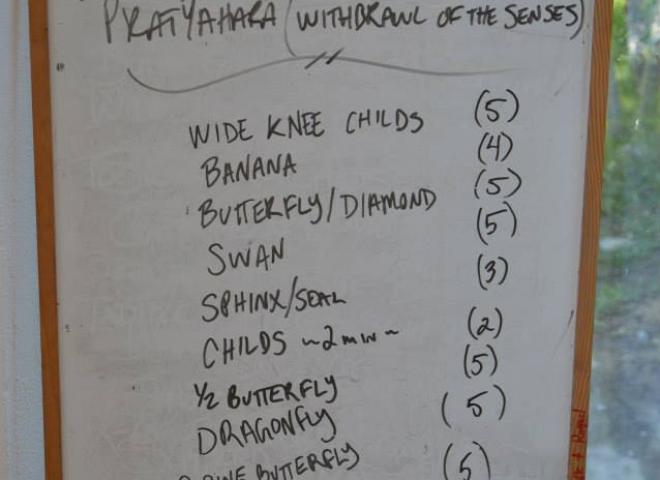 PRATYAHARA (WITHDRAWL OF THE SENSES)
WIDE KNEE CHILDS (5)
BANANA (4)
BUTTERFLY/DIAMOND (5)
SWAN (5)
SPHINX/SEAL (3)
CHILDS ~2 min~ (2)
1/2 BUTTERFLY (5)
DRAGONFLY (5)
BUTTERFLY (5)